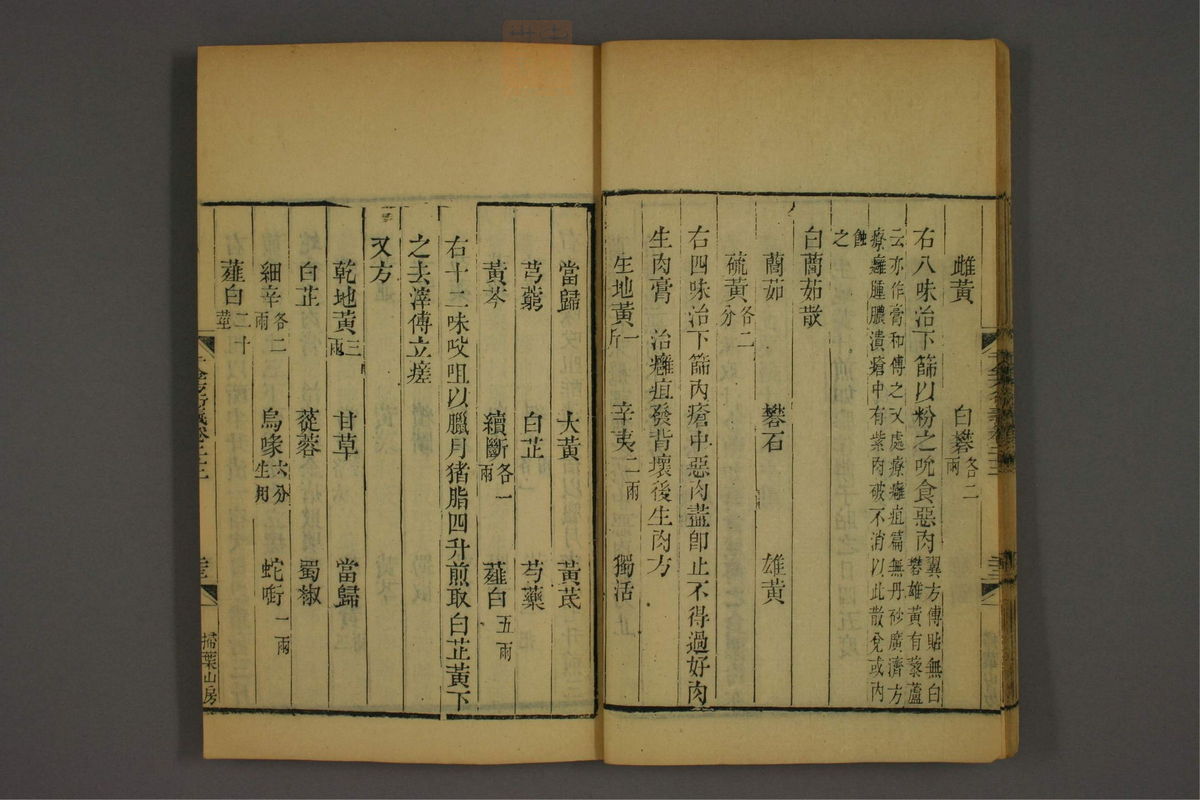 雌黃 白礬各二兩
右八味治下篩以粉之吮食惡肉翼方傅貼無白礬雄黃有藜蘆
云亦作膏和傅之又處療癰疽篇無丹砂廣濟方
療癰腫膿潰瘡中有紫肉破不消以此散兌或内
蝕之
白䕡茹散
䕡茹 礬石 雄黃
硫黃各二分
右四味治下篩内瘡中惡肉盡卽止不得過好肉
生肉膏 治癰疽發背壞後生肉方
生地黃一斤 辛夷二兩 獨活
當歸 大黃 黃芪
芎藭 白芷 芍藥
黃芩 續斷各一兩 薤白五兩
右十二味㕮咀以臘月猪脂四升煎取白芷黃下
之去滓傅立瘥
又方
乾地黃三兩 甘草 當歸
白芷 蓯蓉 蜀椒
細辛各二兩 烏喙六分生用 蛇銜一兩
薤白二十莖
掃葉山房